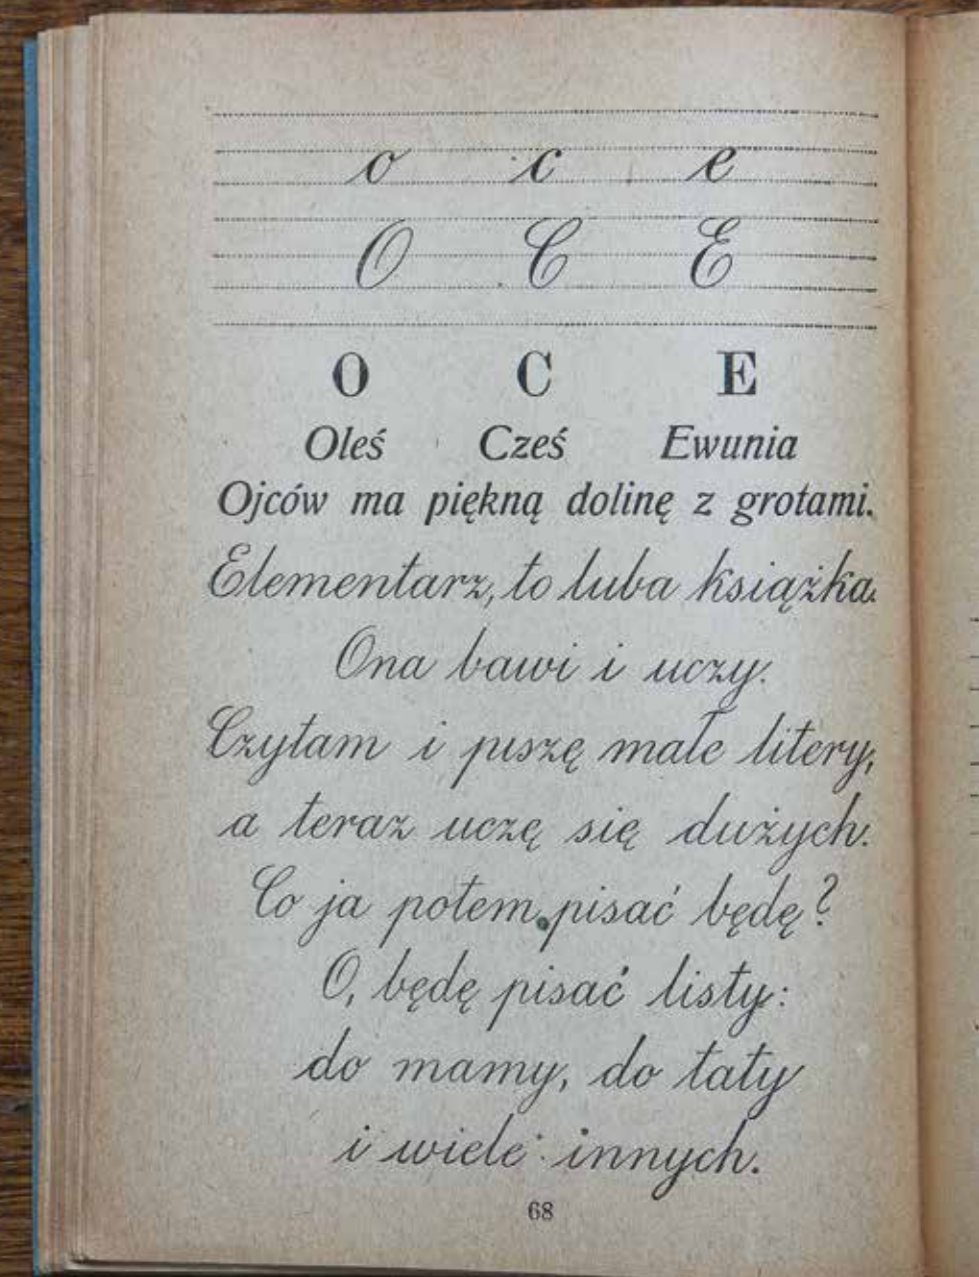 o c e
O C E
O C E
Oleś Cześ Ewunia
Ojców ma piękną dolinę z grotami.
Elementarz, to luba książka.
Ona bawi i uczy.
Czytam i piszę małe litery,
a teraz uczę się dużych.
Co ja potem pisać będę?
O, będę pisać listy:
do mamy, do taty
i wiele innych.
68